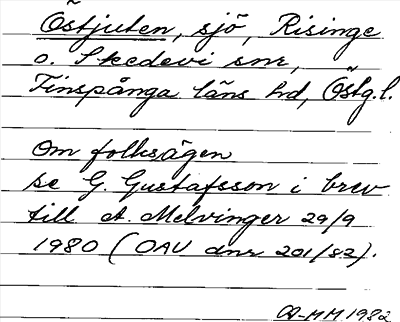 Östjuten, sjö, Risinge
o. Skedevi snr,
Finspånga läns hd, Östg.l.
Om folksägen
se G. Gustafsson i brev
till A. Melvinger 29/9
1980 (OAU dnr 201/82).
MM 1982